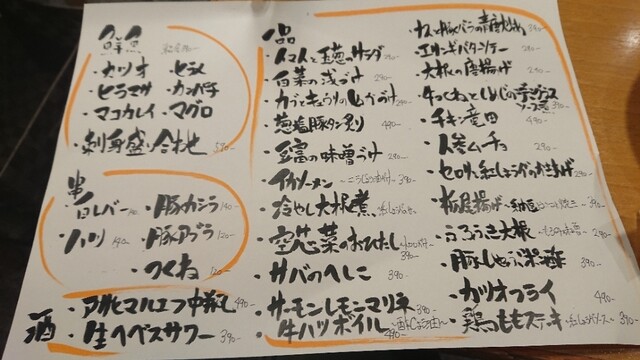 鮮魚
・カツオ ・ヒラメ
・ヒラマサ ・カンパチ
・マコカレイ ・マグロ
・刺身盛り合わせ
串
・白レバー ・豚カシラ
・ハツ ・豚アブラ
・つくね
酒
・アサヒマルエフ中瓶 490-
・生ヘベスサワー 390-
一品
・トマトと玉葱のサラダ
・白菜の浅づけ 290-
・カブとキュウリの
・葱塩豚タン炙り 490-
・豆腐の味噌づけ 290-
・イカソーメン 390-
・冷やし大根煮
・空芯菜のおひたし 390-
・サバのへしこ 390-
・サーモンレモンマリネ 390-
・牛ハツボイル 490-
・ナスと豚バラの
・エリンギバターソテー 290-
・大根の唐揚げ 290-
・牛つくねとしめじの
・チキン竜田 490-
・人参ムチョ 290-
・セロリと紅しょうがのかきあげ 290-
・栃尾揚げ 390-
・ふろふき大根 290-
・豚しゃぶポン酢 390-
・カツオフライ 490-
・鶏ももステーキ 390-